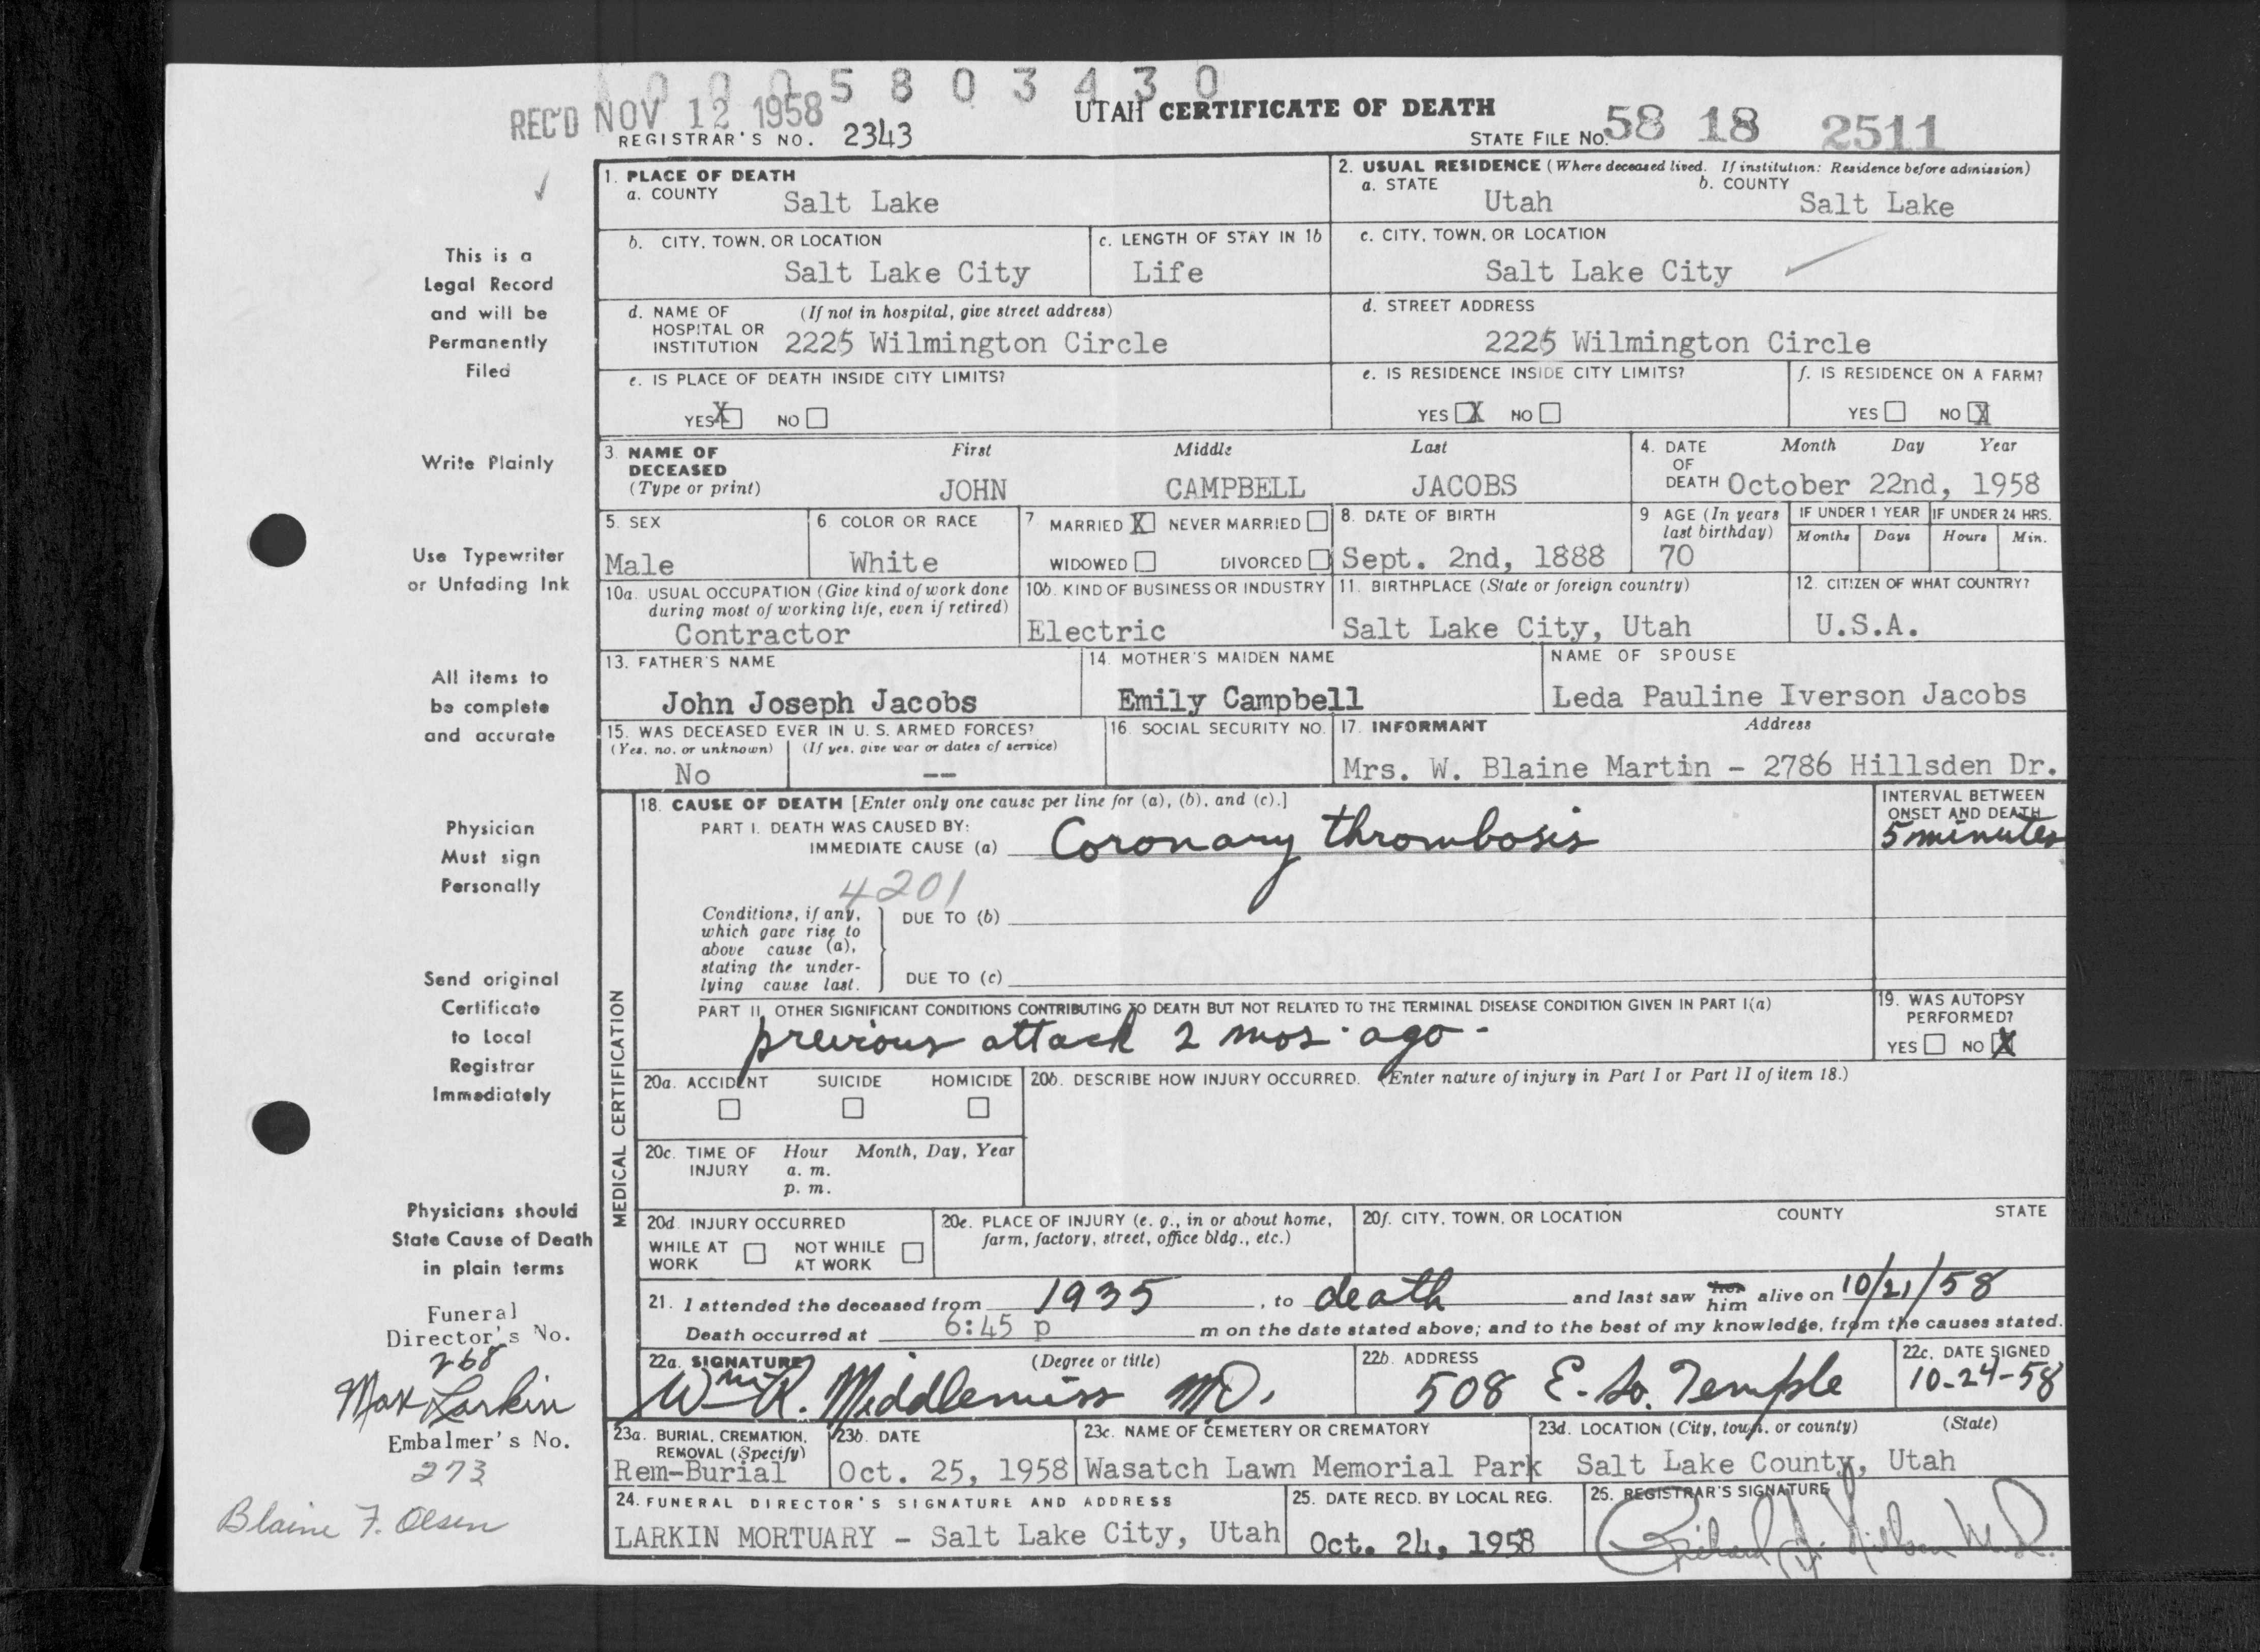 0005803430
REC'D NOV 12 1958
UTAH CERTIFICATE OF DEATH
REGISTRAR'S NO. 2343
STATE FILE NO. 58 18 2511
This is a
Legal Record
and will be
Permanently
Filed
Write Plainly
Use Typewriter
or Unfading Ink
All items to
be complete
and accurate
Physician
Must sign
Personally
Send original
Certificate
to Local
Registrar
Immediately
Physicians should
State Cause of Death
in plain terms
Funeral
Director's No.
268
Max Larkin
Embalmer's No.
273
Blaine F. Olsen
1. PLACE OF DEATH
a. COUNTY Salt Lake
2. USUAL RESIDENCE (Where deceased lived. If institution: Residence before admission)
a. STATE Utah b. COUNTY Salt Lake
b. CITY, TOWN, OR LOCATION Salt Lake City
c. LENGTH OF STAY IN 1b Life
c. CITY, TOWN, OR LOCATION Salt Lake City
d. NAME OF HOSPITAL OR INSTITUTION (If not in hospital, give street address)
2225 Wilmington Circle
d. STREET ADDRESS
2225 Wilmington Circle
e. IS PLACE OF DEATH INSIDE CITY LIMITS?
YES X NO
e. IS RESIDENCE INSIDE CITY LIMITS?
YES X NO
f. IS RESIDENCE ON A FARM?
YES NO X
3. NAME OF DECEASED (Type or print)
First Middle Last
JOHN CAMPBELL JACOBS
4. DATE OF DEATH Month Day Year
October 22nd, 1958
5. SEX
Male
6. COLOR OR RACE
White
7. MARRIED X NEVER MARRIED
WIDOWED DIVORCED
8. DATE OF BIRTH
Sept. 2nd, 1888
9 AGE (In years last birthday)
70
IF UNDER 1 YEAR
Months Days
IF UNDER 24 HRS.
Hours Min.
10a. USUAL OCCUPATION (Give kind of work done during most of working life, even if retired)
Contractor
10b. KIND OF BUSINESS OR INDUSTRY
Electric
11. BIRTHPLACE (State or foreign country)
Salt Lake City, Utah
12. CITIZEN OF WHAT COUNTRY?
U.S.A.
13. FATHER'S NAME
John Joseph Jacobs
14. MOTHER'S MAIDEN NAME
Emily Campbell
NAME OF SPOUSE
Leda Pauline Iverson Jacobs
15. WAS DECEASED EVER IN U. S. ARMED FORCES?
(Yes, no, or unknown) (If yes, give war or dates of service)
No --
16. SOCIAL SECURITY NO.
17. INFORMANT Address
Mrs. W. Blaine Martin - 2786 Hillsden Dr.
MEDICAL CERTIFICATION
18. CAUSE OF DEATH [Enter only one cause per line for (a), (b), and (c).]
PART I. DEATH WAS CAUSED BY:
IMMEDIATE CAUSE (a) Coronary thrombosis
INTERVAL BETWEEN ONSET AND DEATH
5 minutes
4201
Conditions, if any, which gave rise to above cause (a), stating the underlying cause last.
DUE TO (b)
DUE TO (c)
PART II. OTHER SIGNIFICANT CONDITIONS CONTRIBUTING TO DEATH BUT NOT RELATED TO THE TERMINAL DISEASE CONDITION GIVEN IN PART I(a)
previous attack 2 mos. ago -
19. WAS AUTOPSY PERFORMED?
YES NO X
20a. ACCIDENT SUICIDE HOMICIDE
20b. DESCRIBE HOW INJURY OCCURRED. (Enter nature of injury in Part I or Part II of item 18.)
20c. TIME OF INJURY Hour Month, Day, Year
a. m.
p. m.
20d. INJURY OCCURRED
WHILE AT WORK NOT WHILE AT WORK
20e. PLACE OF INJURY (e. g., in or about home, farm, factory, street, office bldg., etc.)
20f. CITY, TOWN, OR LOCATION COUNTY STATE
21. I attended the deceased from 1935, to death and last saw her him alive on 10/21/58
Death occurred at 6:45 p m on the date stated above; and to the best of my knowledge, from the causes stated.
22a. SIGNATURE (Degree or title)
Wm R. Middlemiss MD.
22b. ADDRESS
508 E. So. Temple
22c. DATE SIGNED
10-24-58
23a. BURIAL, CREMATION, REMOVAL (Specify)
Rem-Burial
23b. DATE
Oct. 25, 1958
23c. NAME OF CEMETERY OR CREMATORY
Wasatch Lawn Memorial Park
23d. LOCATION (City, town, or county) (State)
Salt Lake County, Utah
24. FUNERAL DIRECTOR'S SIGNATURE AND ADDRESS
LARKIN MORTUARY - Salt Lake City, Utah
25. DATE RECD. BY LOCAL REG.
Oct. 24, 1958
26. REGISTRAR'S SIGNATURE
Richard